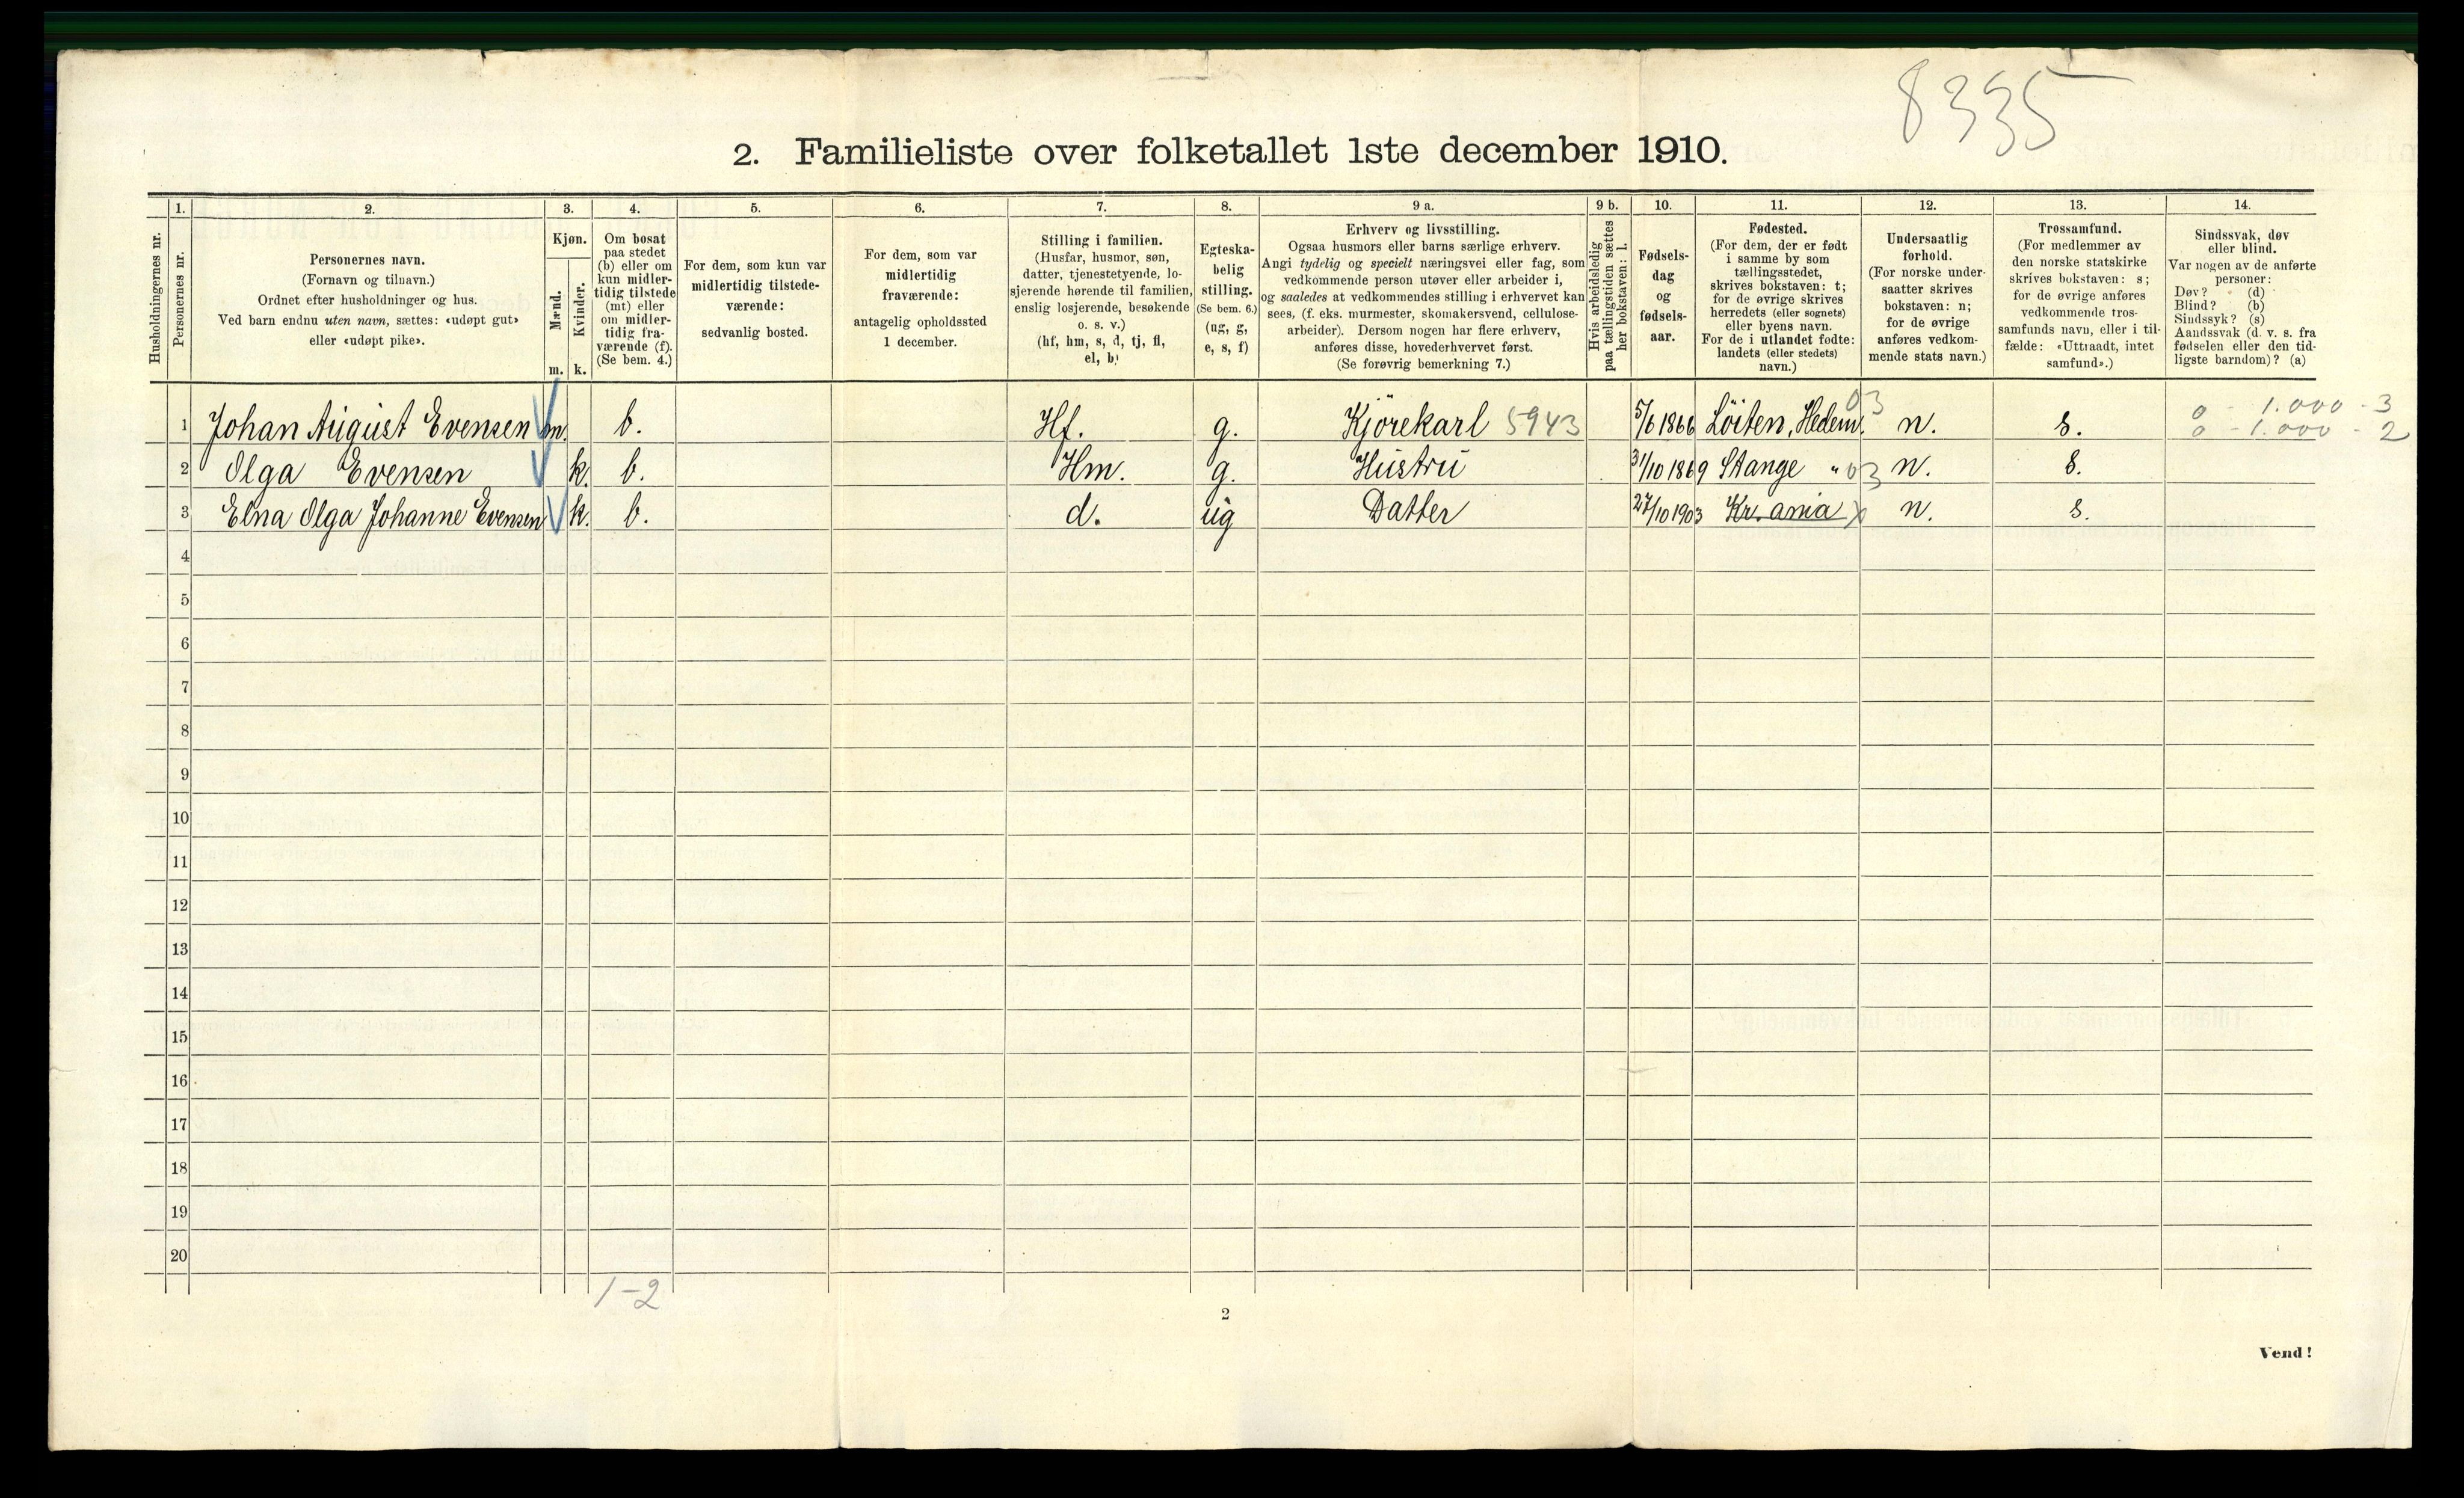 8335
2. Familieliste over folketallet 1ste december 1910.
Husholdningernes nr.
1.
Personernes nr.
2.
Personernes navn.
(Fornavn og tilnavn.)
Ordnet efter husholdninger og hus.
Ved barn endnu uten navn, sættes: «udøpt gut»
eller «udøpt pike».
3.
Kjøn.
Mænd.
m.
Kvinder.
k.
4.
Om bosat
paa stedet
(b) eller om
kun midler-
tidig tilstede
(mt) eller
om midler-
tidig fra-
værende (f).
(Se bem. 4.)
5.
For dem, som kun var
midlertidig tilstede-
værende:
sedvanlig bosted.
6.
For dem, som var
midlertidig
fraværende:
antagelig opholdssted
1 december.
7.
Stilling i familien.
(Husfar, husmor, søn,
datter, tjenestetyende, lo-
sjerende hørende til familien,
enslig losjerende, besøkende
o. s. v.)
(hf, hm, s, d, tj, fl,
el, b)
8.
Egteska-
belig
stilling.
(Se bem. 6.)
(ug, g,
e, s, f)
9 a.
Erhverv og livsstilling.
Ogsaa husmors eller barns særlige erhverv.
Angi tydelig og specielt næringsvei eller fag, som
vedkommende person utøver eller arbeider i,
og saaledes at vedkommendes stilling i erhvervet kan
sees, (f. eks. murmester, skomakersvend, cellulose-
arbeider). Dersom nogen har flere erhverv,
anføres disse, hovederhvervet først.
(Se forøvrig bemerkning 7.)
9 b.
Hvis arbeidsledig
paa tællingstiden sættes
her bokstaven: l.
10.
Fødsels-
dag
og
fødsels-
aar.
11.
Fødested.
(For dem, der er født
i samme by som
tællingsstedet,
skrives bokstaven: t;
for de øvrige skrives
herredets (eller sognets)
eller byens navn.
For de i utlandet fødte:
landets (eller stedets)
navn.)
12.
Undersaatlig
forhold.
(For norske under-
saatter skrives
bokstaven: n;
for de øvrige
anføres vedkom-
mende stats navn.)
13.
Trossamfund.
(For medlemmer av
den norske statskirke
skrives bokstaven: s;
for de øvrige anføres
vedkommende tros-
samfunds navn, eller i til-
fælde: «Uttraadt, intet
samfund».)
14.
Sindssvak, døv
eller blind.
Var nogen av de anførte
personer:
Døv? (d)
Blind? (b)
Sindssyk? (s)
Aandssvak (d. v. s. fra
fødselen eller den tid-
ligste barndom)? (a)
1 Johan August Evensen m. b. Hf. g. Kjörekarl 5943 5/6 1866 Löiten, Hedem. 03 n. s. 0 - 1.000 - 3
0 - 1.000 - 2
2 Olga Evensen k. b. Hm. g. Hustru 31/10 1869 Stange " 03 n. s.
3 Elna Olga Johanne Evensen k. b. d. ug Datter 27/10 1903 Kr.ania n. s.
4
5
6
7
8
9
10
11
12
13
14
15
16
17
18
19
20
1-2
2
Vend!